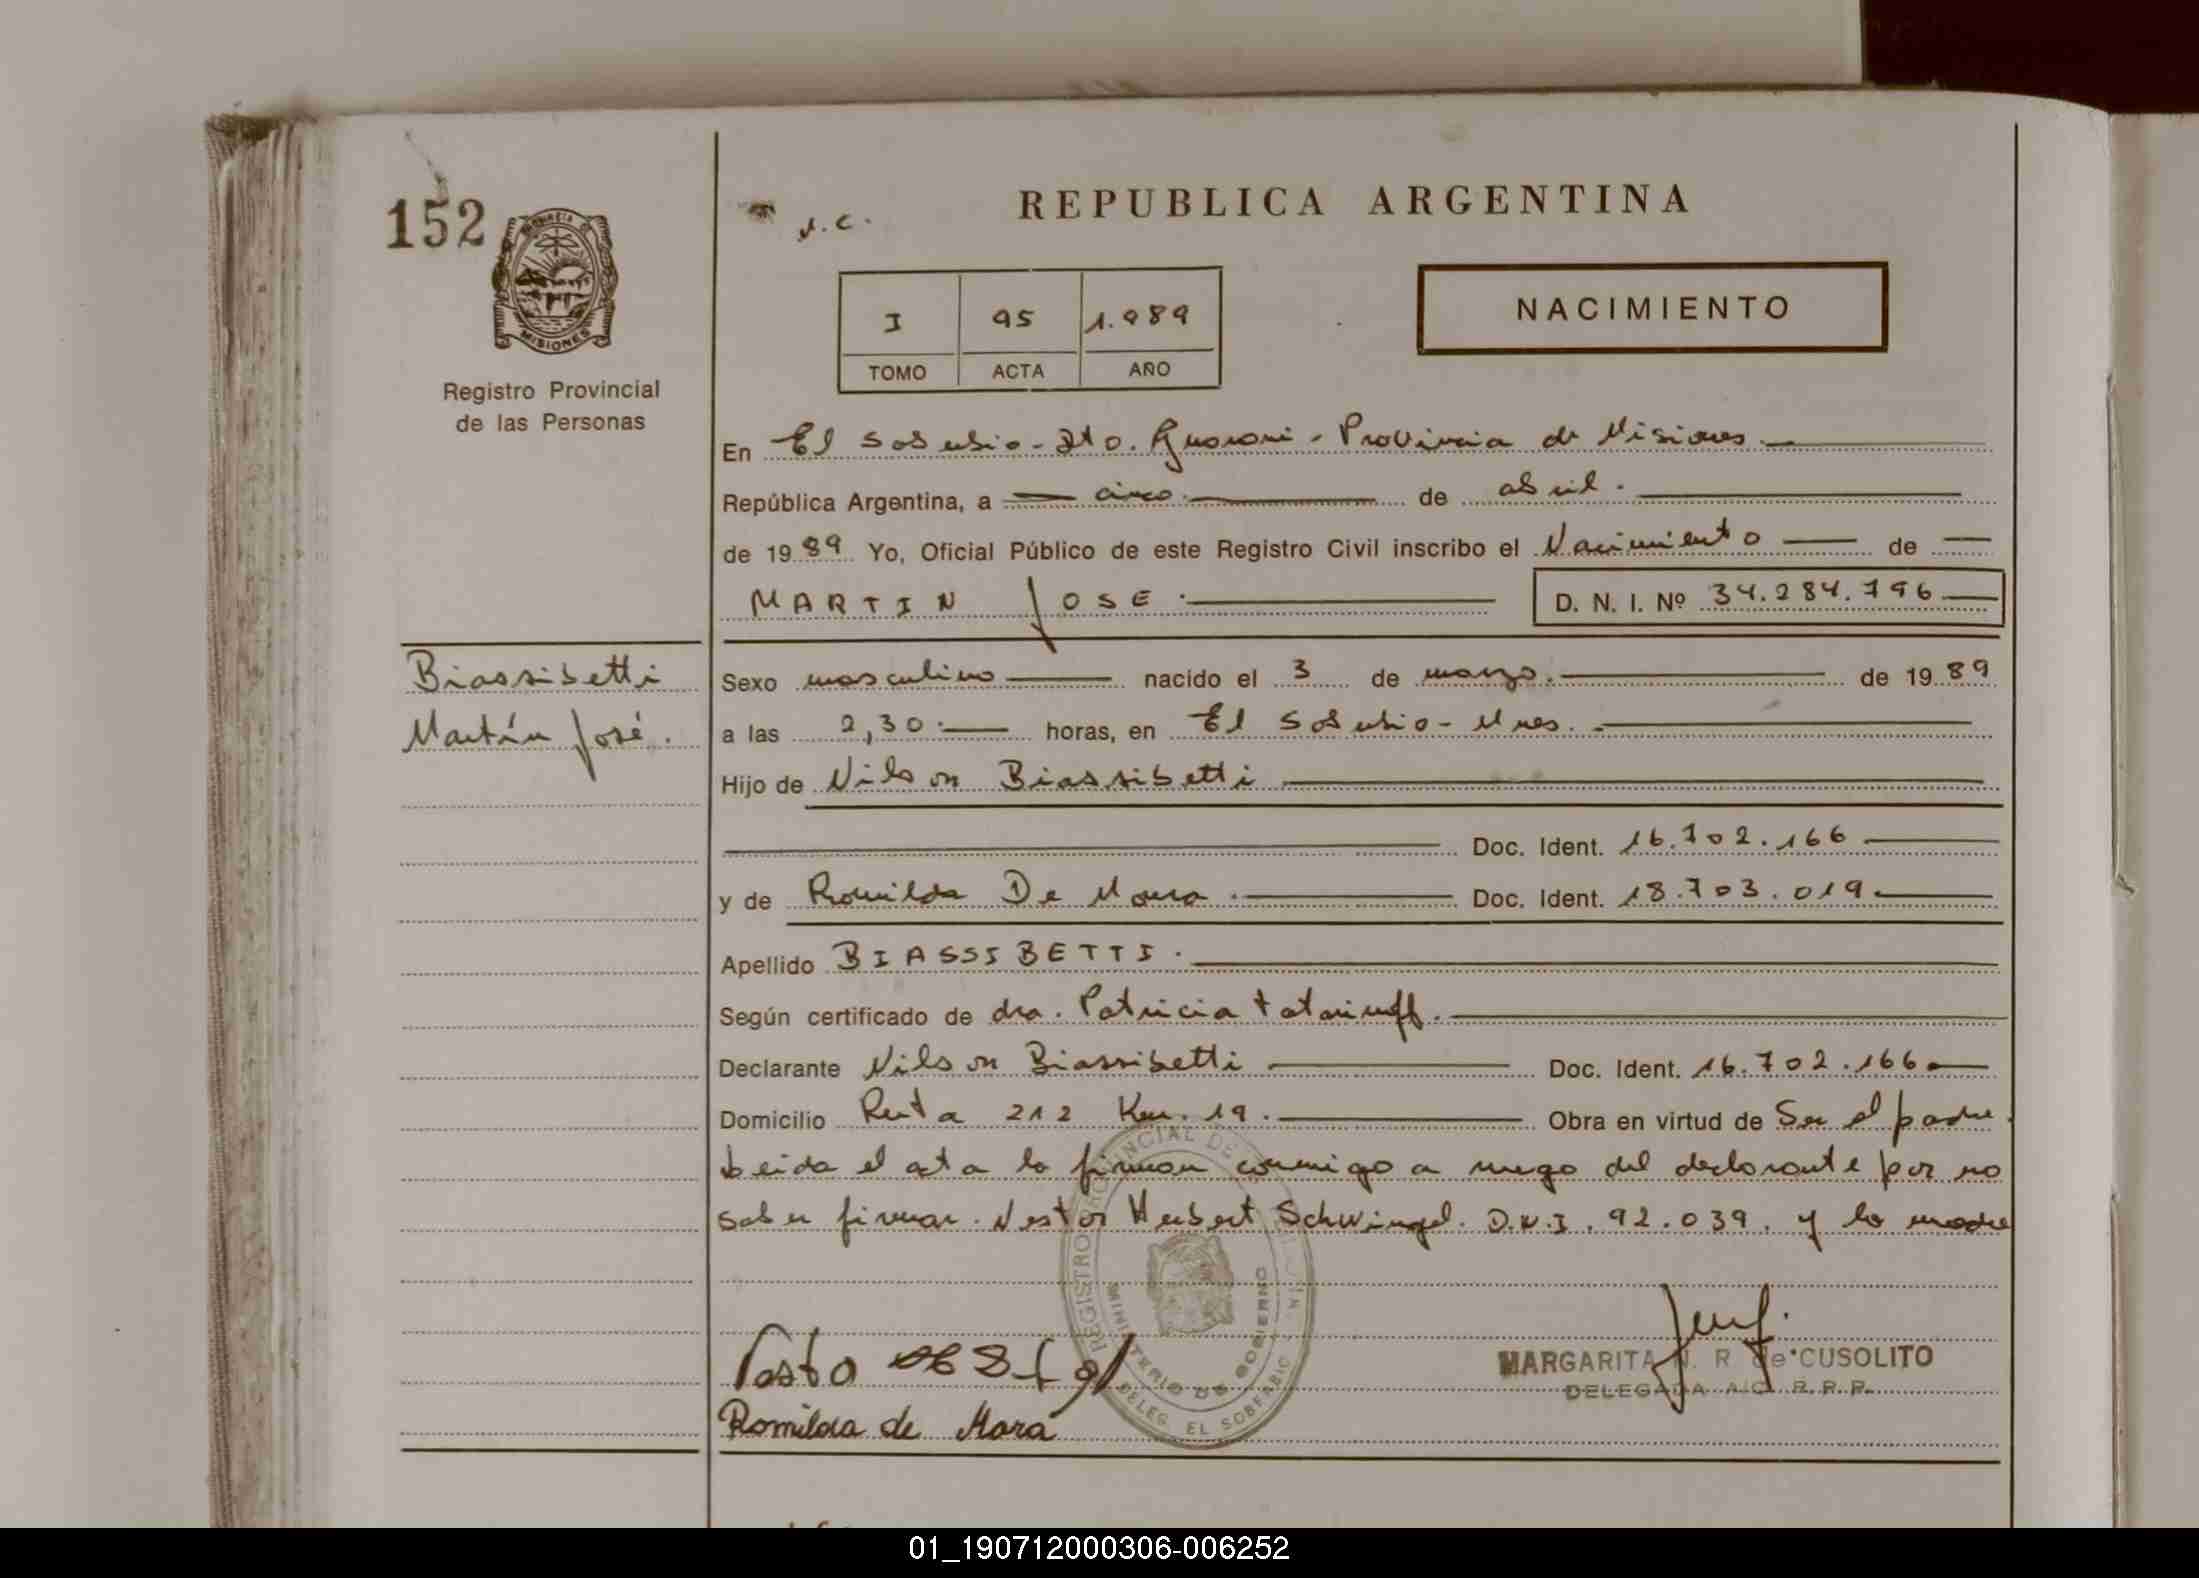 152
PROVINCIA DE
MISIONES
Registro Provincial
de las Personas
Biassibetti
Martín José.
REPUBLICA ARGENTINA
NACIMIENTO
I 95 1.989
TOMO ACTA AÑO
En El Soberbio - Dto. Guarani - Provincia de Misiones.
República Argentina, a cinco. de abril.
de 1989 Yo, Oficial Público de este Registro Civil inscribo el Nacimiento de
MARTIN JOSE. D. N. I. Nº 34.284.796
Sexo masculino nacido el 3 de marzo. de 1989
a las 2,30. horas, en El Soberbio - Mnes.
Hijo de Nilson Biassibetti
Doc. Ident. 16.702.166
y de Romilda De Moura. Doc. Ident. 18.703.019
Apellido BIASSIBETTI.
Según certificado de dra. Patricia
Declarante Nilson Biassibetti Doc. Ident. 16.702.166
Domicilio Ruta 212 Km. 19. Obra en virtud de Ser el padre.
Leida el acta la firman conmigo a ruego del declarante por no
saber firmar. Nestor Herbert Schwingel. D.N.I. 92.039. y la madre
REGISTRO PROVINCIAL DE
MINISTERIO DE GOBIERNO
DELEG. EL SOBERBIO
MARGARITA N. R de CUSOLITO
DELEGADA A/C. R.P.P.
Romilda de Mora
01_190712000306-006252